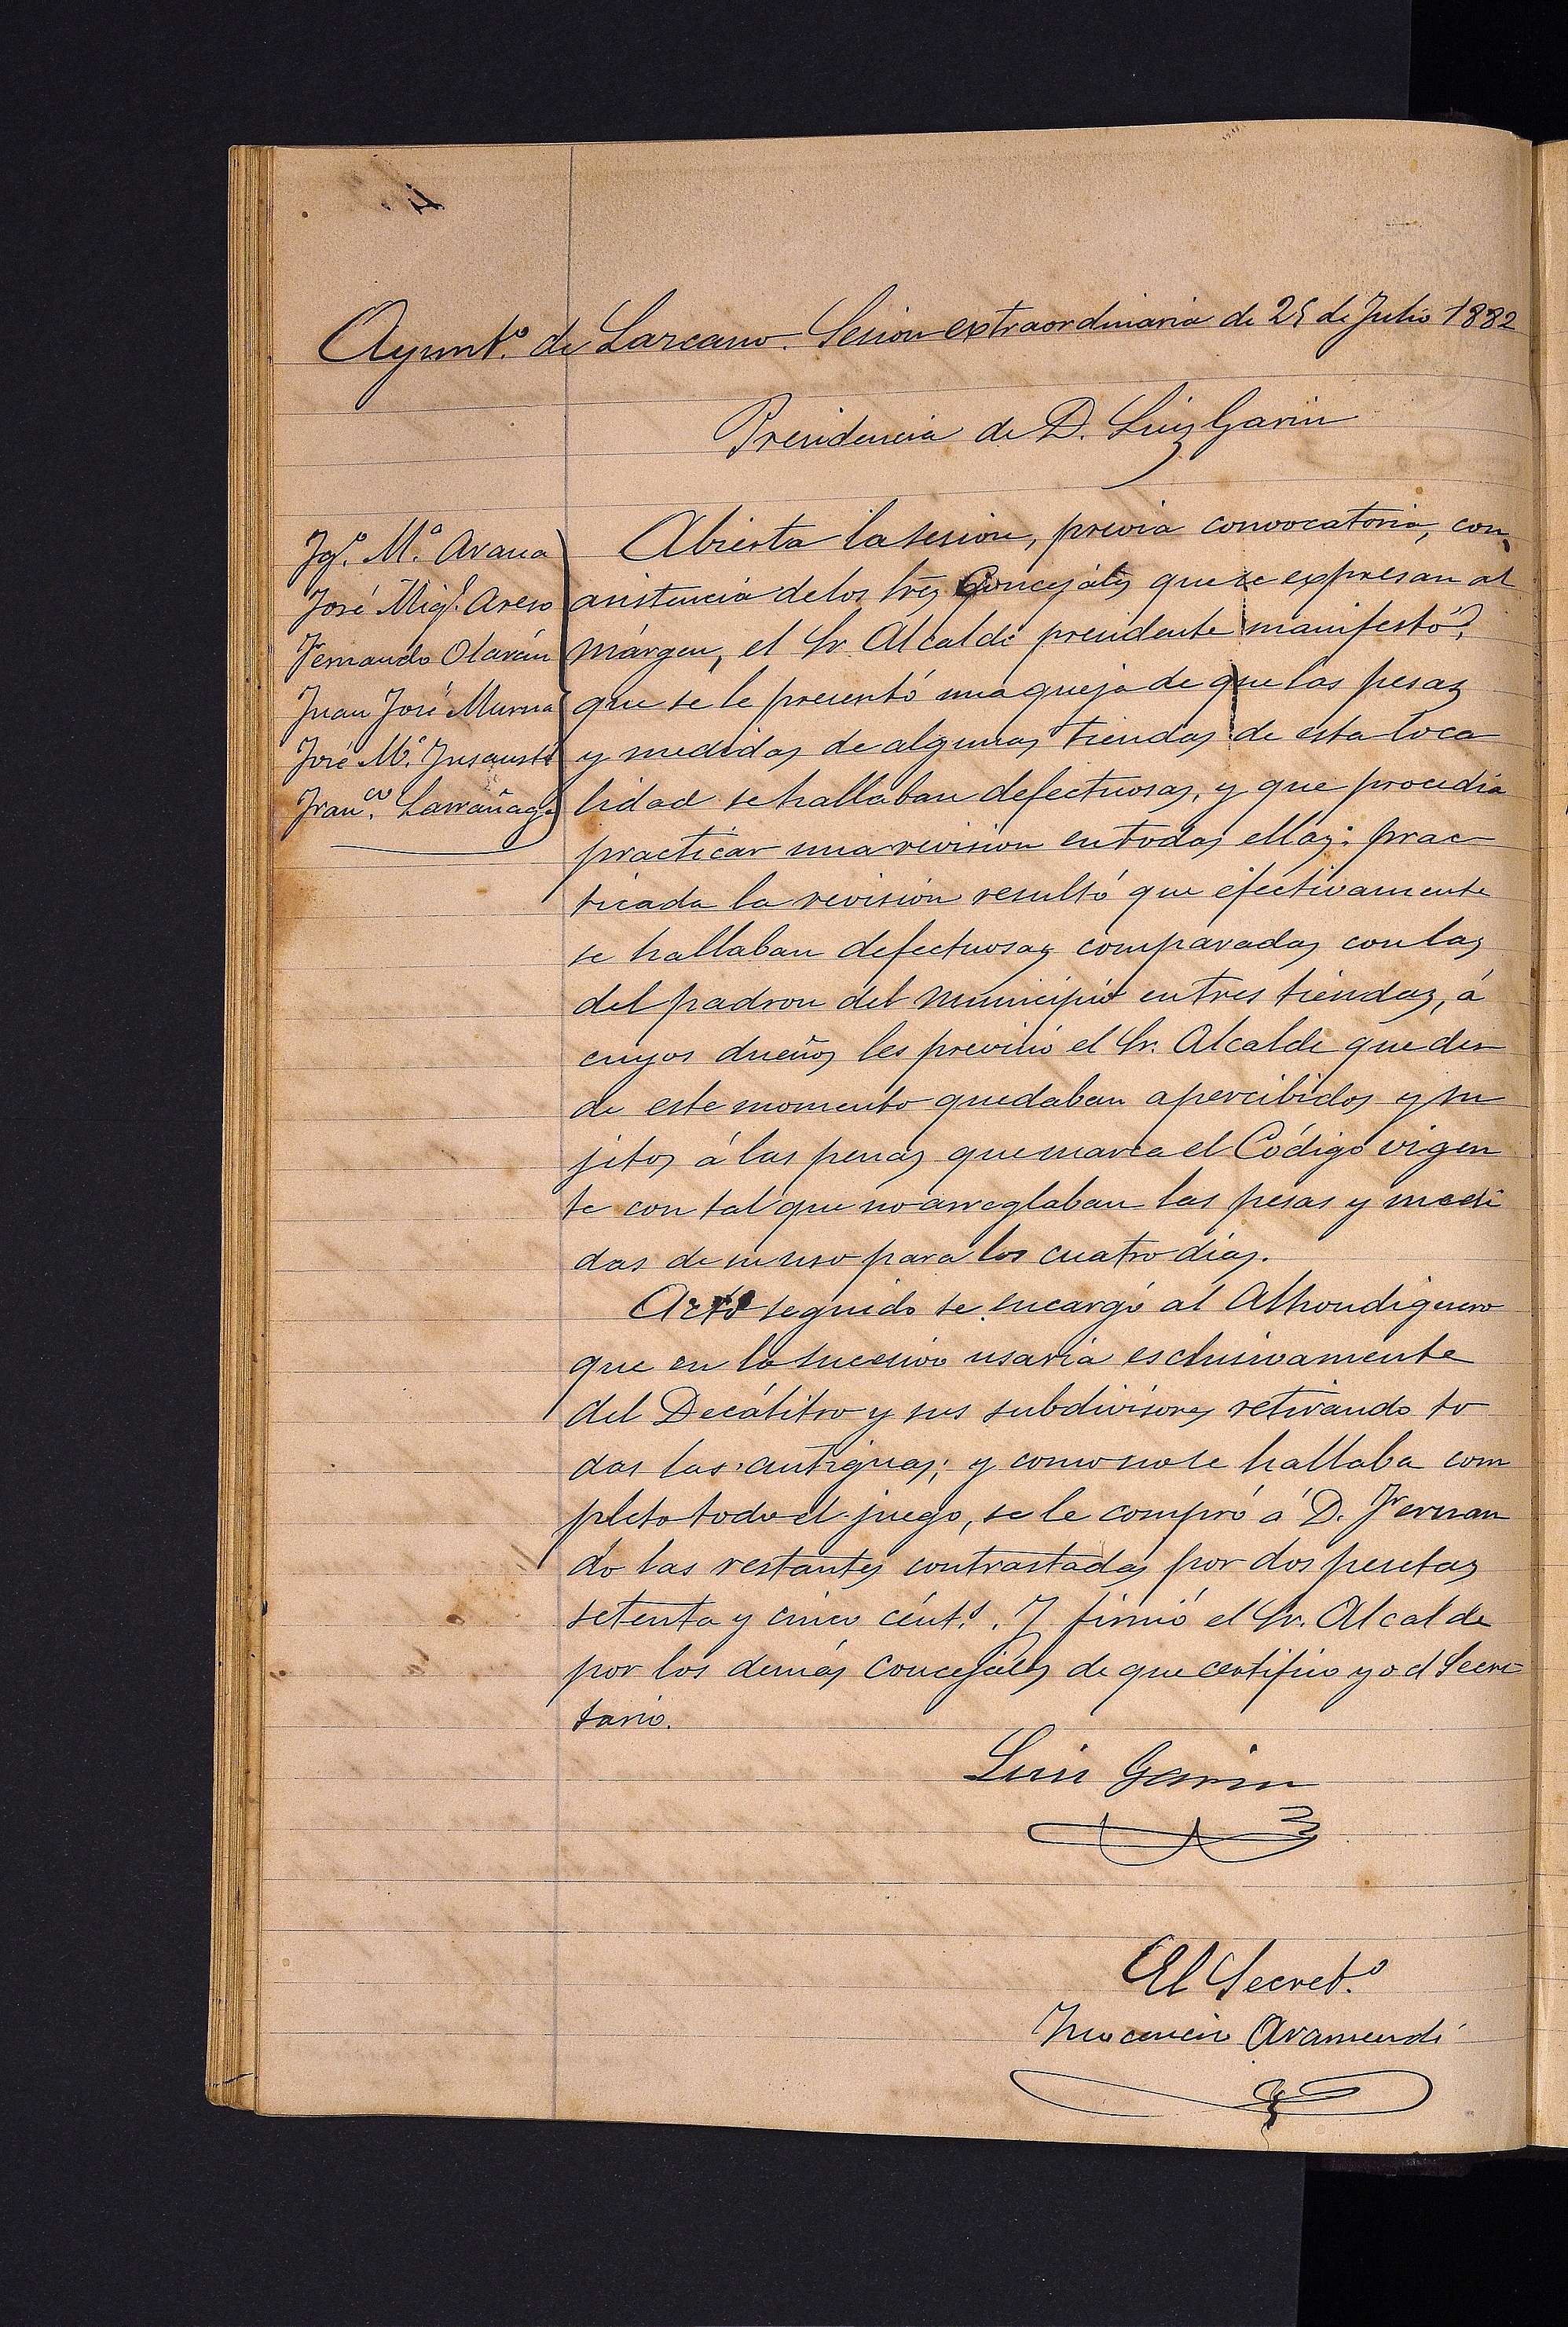 Ayunt.º de Lazcano. Sesion extraordinaria de 25 de Julio 1882
Presidencia de D. Luis Garin
Ig.º M.ª Arana
José Mig.l Areso
Fernando Olarán
Juan José Murua
José M.ª Insausti
Fran.co Larrañaga
Abierta la sesion, previa convocatoria, con
asistencia de los Sres Concejales que se expresan al
márgen, el Sr. Alcalde presidente manifestó,
que se le presentó una queja de que las pesas
y medidas de algunas tiendas de esta loca
lidad se hallaban defectuosas, y que procedia
practicar una revision en todas ellas: prac
ticada la revision resultó que efectivamente
se hallaban defectuosas comparadas con las
del padron del Municipio en tres tiendas, á
cuyos dueños les previno el Sr. Alcalde que des
de este momento quedaban apercibidos y su
jetos á las penas que marca el Código vigen
te con tal que no arreglaban las pesas y medi
das de su uso para los cuatro dias.
Acto seguido se encargó al Alhondiguero
que en lo sucesivo usaria esclusivamente
del Decálitro y sus subdivisores retirando to
das las antiguas; y como no se hallaba com
pleto todo el juego, se le compró á D. Fernan
do las restantes contrastadas por dos pesetas
setenta y cinco cént.s. Y firmó el Sr. Alcalde
por los demás Concejales de que certifico yo el Secre
tario.
Luis Garin
El Secret.º
Inocencio Aramendi